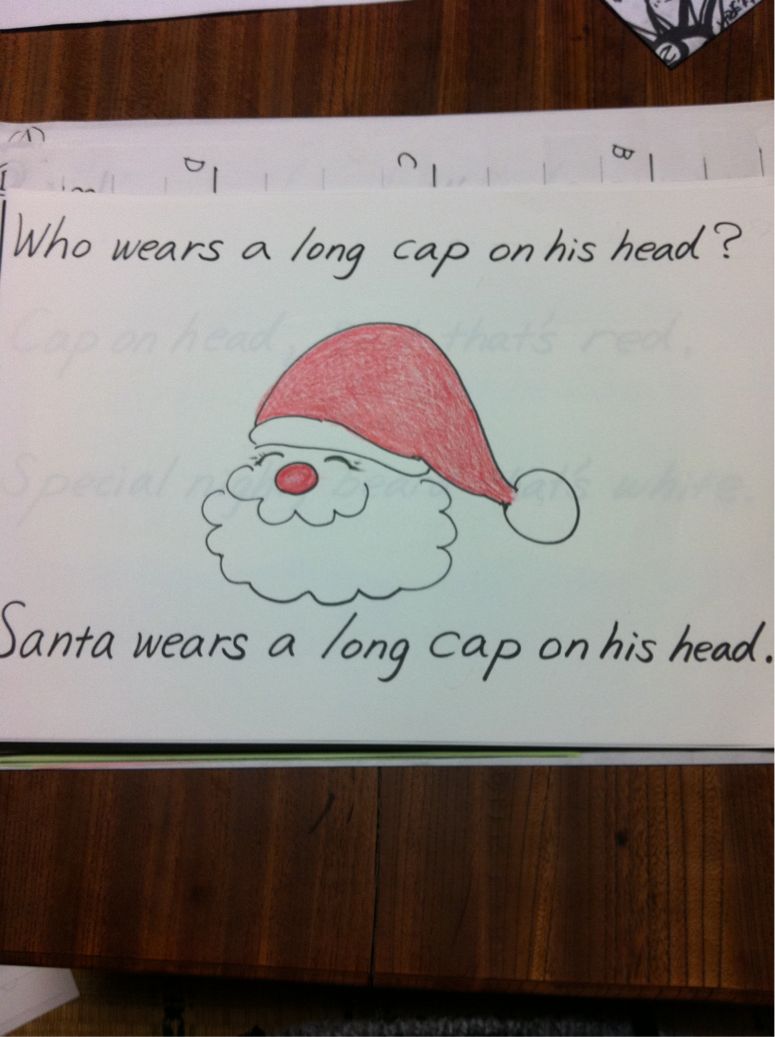 D C B
Who wears a long cap on his head?
Cap on head, that's red.
Special night, beard that's white.
Santa wears a long cap on his head.